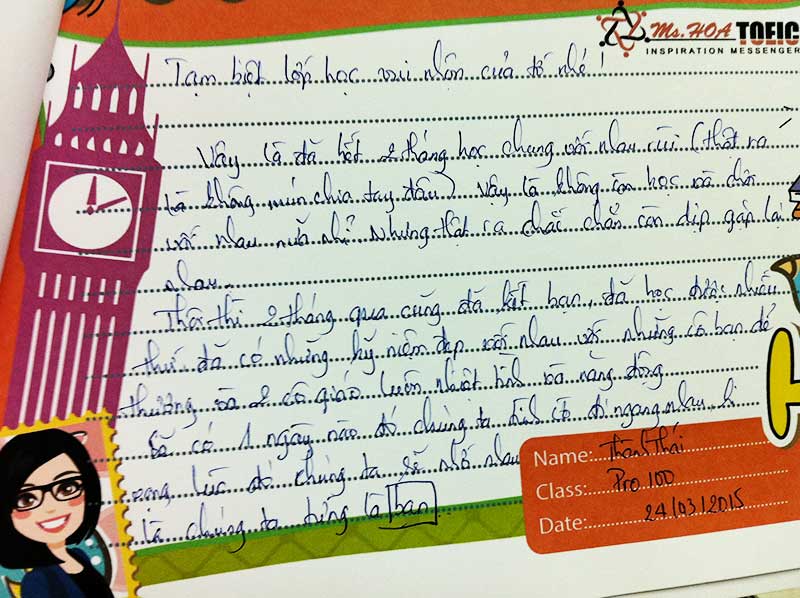 Ms. HOA TOEIC
INSPIRATION MESSENGER
Tạm biệt lớp học vui nhộn của tớ nhé!
Vậy là đã hết 2 tháng học chung với nhau rùi (thật ra
là không mún chia tay đâu) Vậy là không còn học và chơi
với nhau nữa nhỉ. Nhưng thật ra chắc chắn còn dịp gặp lại
nhau.
Thôi thì 2 tháng qua cũng đã kết bạn, đã học được nhiều
thứ, đã có những kỷ niệm đẹp với nhau với những cô bạn dễ
thương và 2 cô giáo luôn nhiệt tình và năng động
Sẽ có 1 ngày nào đó chúng ta tình cờ đi ngang nhau, hi
vọng lúc đó chúng ta sẽ nhớ nhau
là chúng ta từng là bạn.
Name: Thành Thái
Class: Pro 100
Date: 24/03/2015